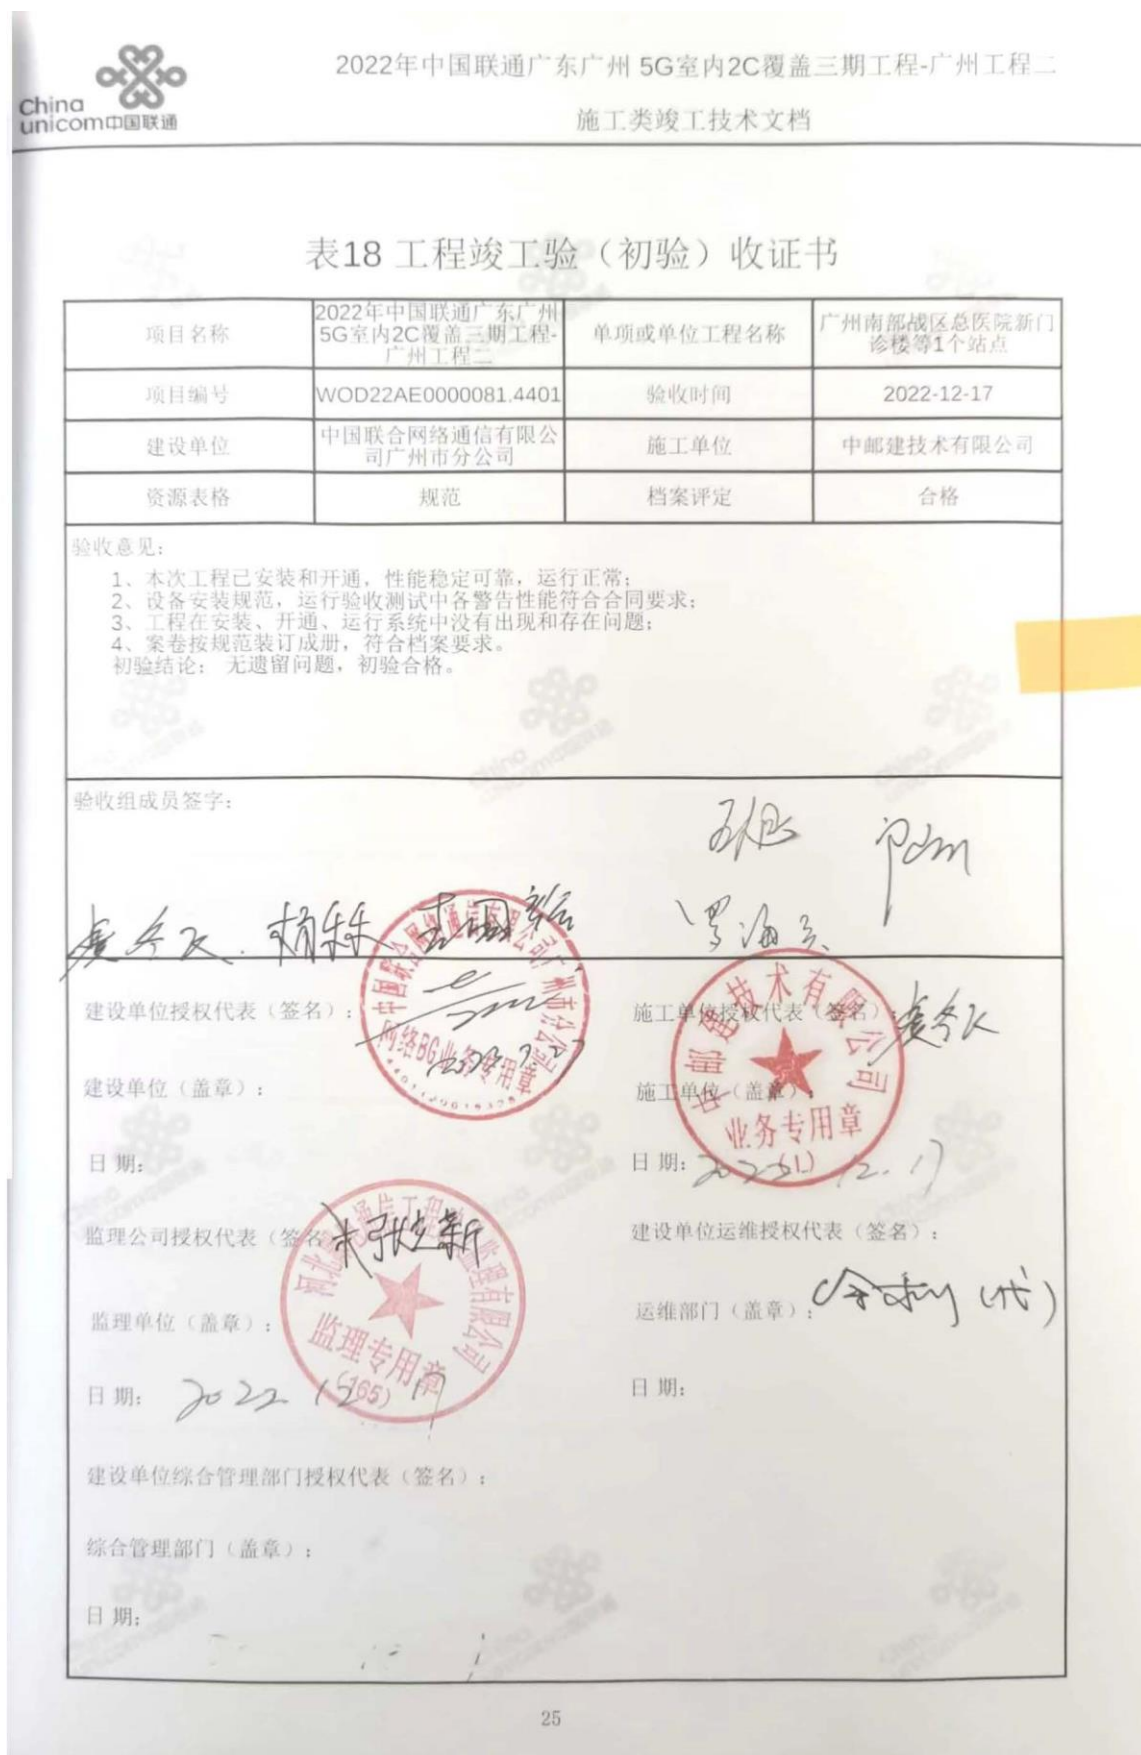 China
unicom中国联通
2022年中国联通广东广州 5G室内2C覆盖三期工程-广州工程二
施工类竣工技术文档
表18 工程竣工验（初验）收证书
项目名称
2022年中国联通广东广州
5G室内2C覆盖三期工程-
广州工程二
单项或单位工程名称
广州南部战区总医院新门
诊楼等1个站点
项目编号
WOD22AE0000081.4401
验收时间
2022-12-17
建设单位
中国联合网络通信有限公
司广州市分公司
施工单位
中邮建技术有限公司
资源表格
规范
档案评定
合格
验收意见：
1、本次工程已安装和开通，性能稳定可靠，运行正常；
2、设备安装规范，运行验收测试中各警告性能符合合同要求；
3、工程在安装、开通、运行系统中没有出现和存在问题；
4、案卷按规范装订成册，符合档案要求。
初验结论： 无遗留问题，初验合格。
验收组成员签字：
建设单位授权代表（签名）：
施工单位授权代表（签名）：
中国联合网络通信有限公司广州市分公司
网络BG业务专用章
中邮建技术有限公司
业务专用章
(1)
建设单位（盖章）：
施工单位（盖章）：
日 期：
日 期： 2022.12.17
监理公司授权代表（签名
建设单位运维授权代表（签名）：
监理专用章
(165)
监理单位（盖章）：
运维部门（盖章）：
日 期： 2022.12.17
日 期：
建设单位综合管理部门授权代表（签名）：
综合管理部门（盖章）：
日 期：
25